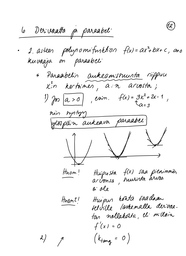 6. Derivaatta ja paraabeli
• 2. asteen polynomifunktion f(x)=ax²+bx+c, ans
kuvaaja on paraabeli
• Paraabelin aukeamissuunta riippuu
x:n kertoimen, a:n arvosta;
1) Jos a>0, esim. f(x)=3x²+2x-1,
a=3
niin
ylöspäin aukeava paraabeli
Huom! Huipussa f(x) saa pienimmän
arvonsa, suurinta arvoa
ei ole
Huom! Huipun kohta saadaan
laskemalla derivaa-
tan nollakohta, eli milloin
f'(x) = 0
2)
= 0)